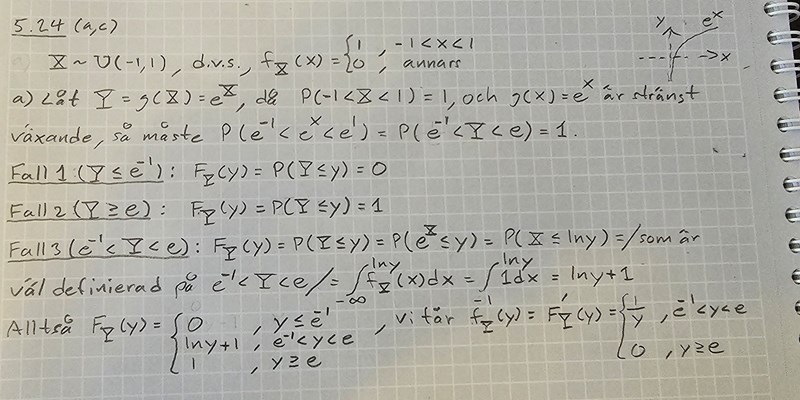 5.24 (a,c)
X ~ U(-1,1), d.v.s., f_X(x) = { 1 , -1 < x < 1
0 , annars
y
e^x
x
a) Låt Y = g(X) = e^X, då P(-1 < X < 1) = 1, och g(x) = e^x är stränst
växande, så måste P(e^-1 < e^X < e^1) = P(e^-1 < Y < e) = 1.
Fall 1 (Y ≤ e^-1): F_Y(y) = P(Y ≤ y) = 0
Fall 2 (Y ≥ e): F_Y(y) = P(Y ≤ y) = 1
Fall 3 (e^-1 < Y < e): F_Y(y) = P(Y ≤ y) = P(e^X ≤ y) = P(X ≤ ln y) = / som är
väl definierad på e^-1 < Y < e / = ∫_{-∞}^{ln y} f_X(x) dx = ∫_{-1}^{ln y} 1 dx = ln y + 1
Alltså F_Y(y) = { 0 , y ≤ e^-1 , vi får f_Y(y) = F'_Y(y) = { 1/y , e^-1 < y < e
ln y + 1 , e^-1 < y < e
1 , y ≥ e
0 , y ≥ e